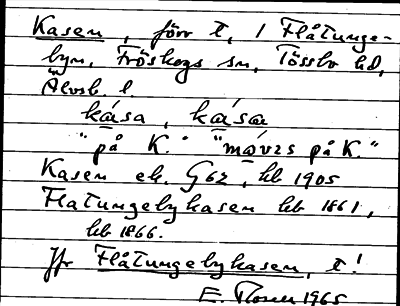 Kasen, förr t, i Flåtunge-
byn, Fröskogs sn, Tössbo hd,
Älvsb. l.
kása, kása
"på K." "mávɩs på K."
Kasen ek. G62, hb 1905
Flatungebykasen hb 1861,
hb 1866.
Jfr Flåtungebykasen, t!
E. 1965